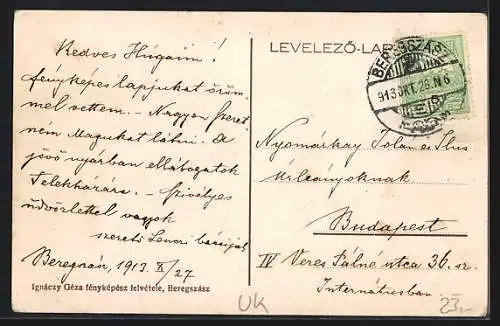 LEVELEZŐ-LAP
BEREGSZÁSZ
913 OKT. 26. N 6
Kedves Húgaim!
fényképes lapjukat öröm-
mel vettem. – Nagyon szeret-
ném Magukat látni. A
jövő nyárban ellátogatok
Telekházára. – Szivélyes
üdvözlettel vagyok
szerető Lenczi bácsijuk
Beregszász, 1913. X/27
Ignáczy Géza fényképész felvétele, Beregszász
Nyomárkay Jolán és Ilus
Urleányoknak
Budapest
IV Veres Pálné utca 36. sz.
Internátusban
UK
23.-